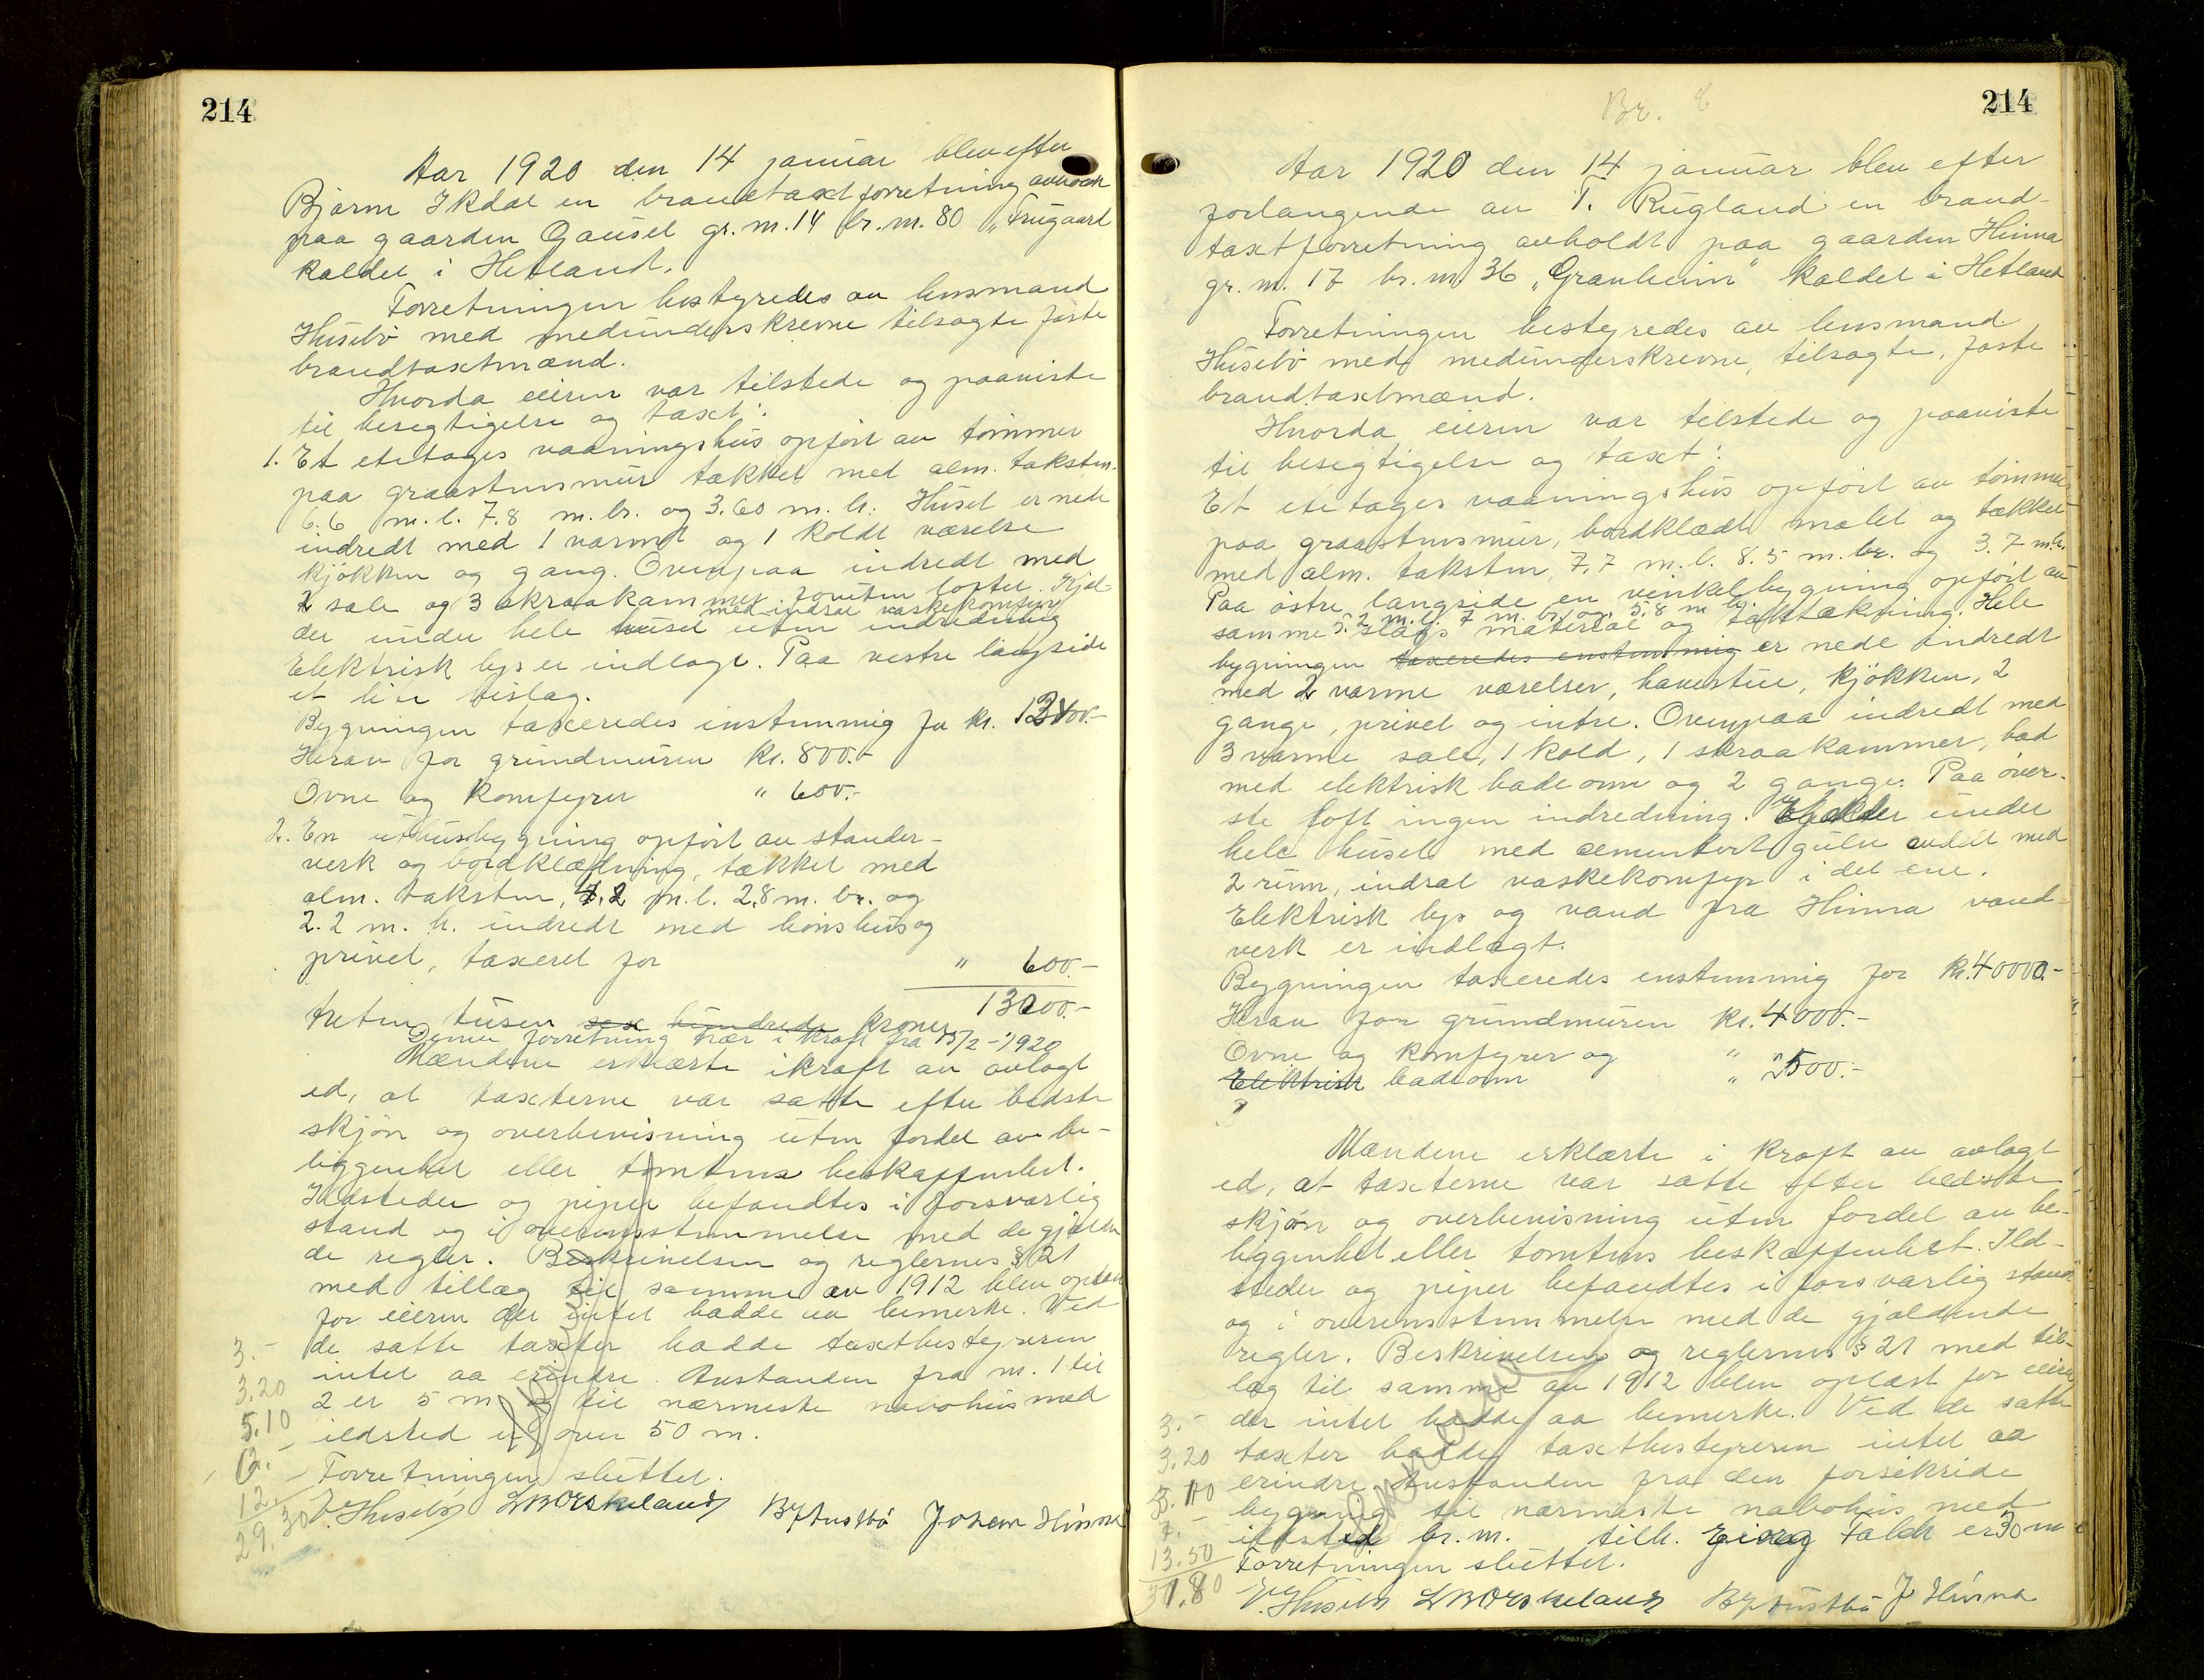 214
Aar 1920 den 14 januar blev efter
Bjarne Ikdal en brandtaxtforretning avholdt
paa gaarden Gausel gr. n. 14 br. n. 80 „Frugaard
kaldet i Hetland.
Forretningen bestyredes av lensmand
Husebö med medunderskrevne tilsagte faste
brandtaxtmænd.
Hvorda eieren var tilstede og paaviste
til besigtigelse og taxt:
1. Et etetages vaaningshus opfört av tömmer
paa graastensmur tækket med alm. taksten.
6.6 m. l. 7.8 m. br. og 3.60 m. h. Huset er nede
indredt med 1 varmt og 1 koldt værelse
kjökken og gang. Ovenpaa indredt med
2 sale og 3 skraakammer foruten loftet. Kjel-
med indsat vaskekomfyr
der under hele huset uten indredning
Elektrisk lys er indlagt. Paa vestre langside
et lite bislag.
Bygningen taxeredes enstemmig for kr. 12400.-
Herav for grundmuren kr. 800.-
Ovne og komfyrer " 600.-
2. En uthusbygning opfört av stander-
verk og bordklædning, tækket med
alm. taksten, 4.2 m. l. 2.8 m. br. og
2.2 m. h. indredt med hönshus og
privet, taxeret for " 600.-
13000.-
tretten tusen sex hundrede kroner
Denne forretning trær i kraft fra 15/2 - 1920
Mændene erklærte i kraft av avlagt
ed, at taxterne var satte efter bedste
skjön og overbevisning uten fordel av be-
liggenhet eller tomtens beskaffenhet.
Ildsteder og piper befandtes i forsvarlig
stand og i overensstemmelse med de gjælden
de regler. Beskrivelsen og reglernes § 21
med tillæg til samme av 1912 blev oplæst
for eieren der intet hadde aa bemerke. Ved
de satte taxter hadde taxtbestyreren
intet aa erindre. Avstanden fra n. 1 til
2 er 5 m og til nærmeste nabohus med
ildsted er over 50 m.
Forretningen sluttet.
3.-
3.20
5.10
6.-
12.-
29.30
E. Husebö L W Orskeland B Y Austbö Johan Hinna
Br. 8
214
Aar 1920 den 14 januar blev efter
forlangende av T. Rugland en brand-
taxtforretning avholdt paa gaarden Hinna
gr. n. 17 br. n. 36 „Granheim" kaldet i Hetland
Forretningen bestyredes av lensmand
Husebö med medunderskrevne, tilsagte, faste
brandtaxtmænd.
Hvorda eieren var tilstede og paaviste
til besigtigelse og taxt:
Et etetages vaaningshus opfört av tömmer
paa graastensmur, bordklædt malet og tækket
med alm. taksten, 7,7 m. l. 8.5 m. br. og 3.7 m. h.
Paa östre langside en vinkelbygning opfört av
5.2 m. l. 7 m. br. og 5.8 m h.
samme slags material og taktækning. Hele
bygningen taxeredes enstemmig er nede indredt
med 2 varme værelser, havestue, kjökken, 2
gange, privet og entre. Ovenpaa indredt med
3 varme sale, 1 kold, 1 skraakammer, bad
med elektrisk badeovn og 2 gange. Paa över-
ste loft ingen indredning. Kjelder under
hele huset med cementert gulv avdelt med
2 rum, indsat vaskekomfyr i det ene.
Elektrisk lys og vand fra Hinna vand-
verk er indlagt.
Bygningen taxeredes enstemmig for kr. 40000.-
Herav for grundmuren kr. 4000.-
Ovne og komfyrer og "
Elektrisk badeovn " 2500.-
Mændene erklærte i kraft av avlagt
ed, at taxterne var satte efter bedste
skjön og overbevisning uten fordel av be-
liggenhet eller tomtens beskaffenhet. Ild-
steder og piper befandtes i forsvarlig stand
og i overensstemmelse med de gjældende
regler. Beskrivelsen og reglernes § 21 med til-
læg til samme av 1912 blev oplæst for eieren
der intet hadde aa bemerke. Ved de satte
taxter hadde taxtbestyreren intet aa
erindre. Avstanden fra den forsikrede
bygning til nærmeste nabohus med
ildsted br. n. tilh. Falch er 30 m
Forretningen sluttet.
3.-
3.20
5.10
7.-
13.50
31.80
E. Husebö L W Orskeland B Y Austbö J Hinna